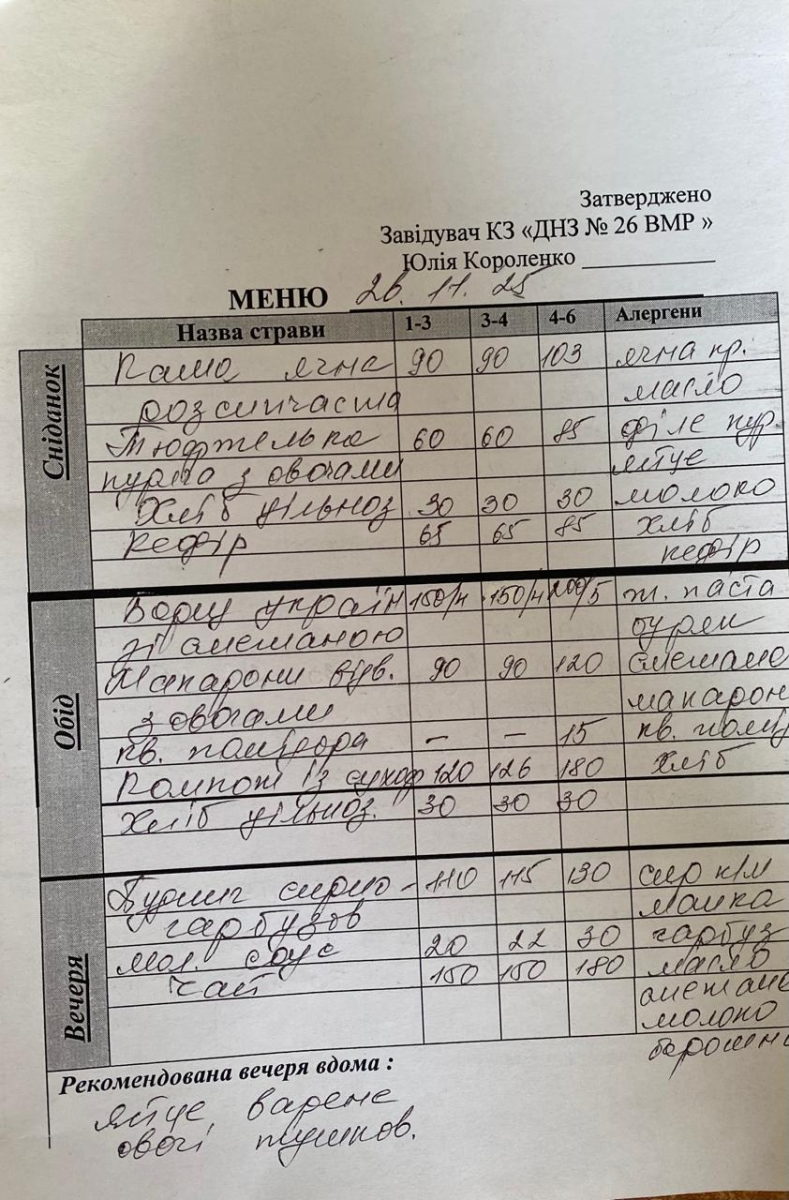 Затверджено
Завідувач КЗ «ДНЗ № 26 ВМР »
Юлія Короленко
МЕНЮ 26. 11. 25
Назва страви 1-3 3-4 4-6 Алергени
Сніданок
Каша ячна 90 90 103 ячна кр.
розсипчаста масло
Тюфтелька 60 60 85 філе кур.
куряча з овочами яйце
Хліб цільноз 30 30 30 молоко
Кефір 65 65 85 хліб
кефір
Обід
Борщ україн 150/4 150/4 200/5 т. паста
зі сметаною буряк
Макарони відв. 90 90 120 сметана
з овочами макарон
кв. помідора – – 15 кв. помід
Компот із сухоф 120 126 180 хліб
Хліб цільноз. 30 30 30
Вечеря
Пудинг сирно- 110 115 130 сир к/м
гарбузов манка
мол. соус 20 22 30 гарбуз
чай 150 150 180 масло
сметана
молоко
борошн
Рекомендована вечеря вдома :
яйце варене
овочі тушков.